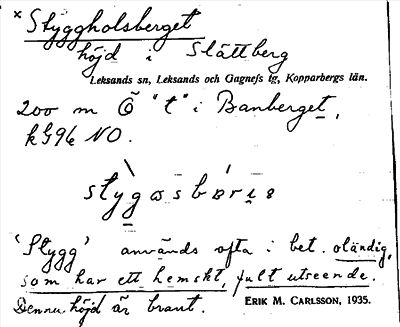 × Styggholsberget
höjd i Slättberg
Leksands sn, Leksands och Gagnefs tg, Kopparbergs län.
200 m Ö "t" i Banberget,
kG96 NO.
'Stygg' används ofta i bet. oländig,
som har ett hemskt, fult utseende.
Denna höjd är brant.
ERIK M. CARLSSON, 1935.